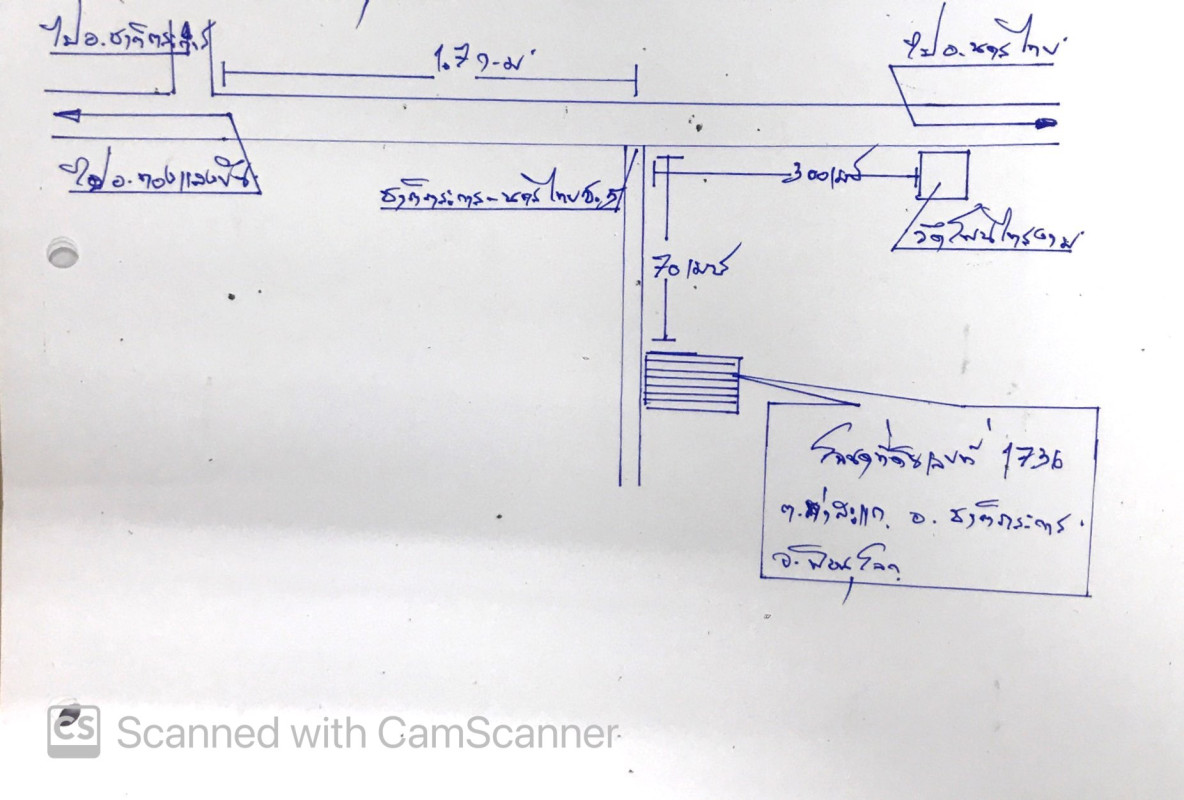 ไป อ.ชาติตระการ
1.7 ก.ม.
ไป อ.นครไทย
ไป อ.ทองแสงขัน
ชาติตระการ-นครไทย ซ.5
300 เมตร
วัดโพธิ์ไทรงาม
70 เมตร
โฉนดที่ดินเลขที่ 1736
ต.ท่าสะแก อ.ชาติตระการ
จ.พิษณุโลก
CS Scanned with CamScanner